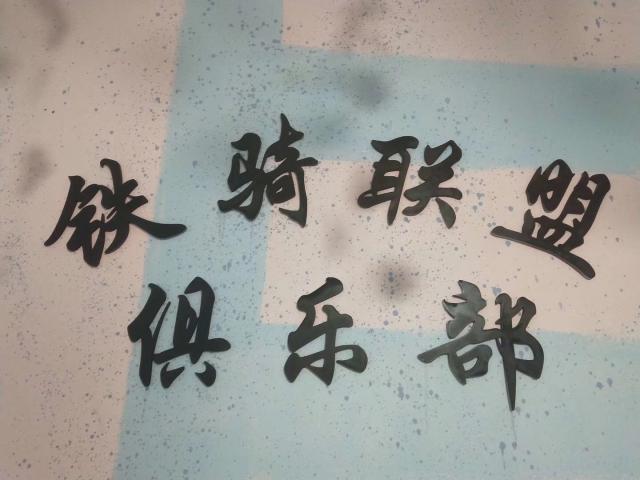 铁骑联盟
俱乐部